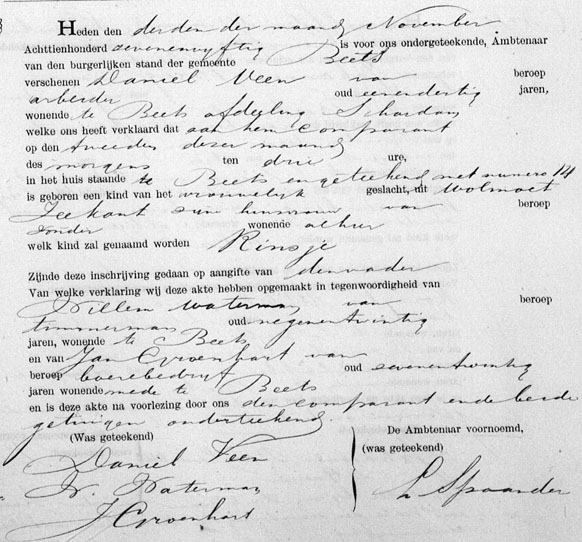 Heden den derden der maand November
Achttienhonderd zevenenvyftig is voor ons ondergeteekende, Ambtenaar
van den burgerlijken stand der gemeente Beets
verschenen Daniel Veen van beroep
arbeider oud eenendertig jaren,
wonende te Beets afdeyling Schardam
welke ons heeft verklaard dat aan hem Comparant
op den tweeden dezer maand
des morgens ten drie ure,
in het huis staande te Beets en geteekend met numero 14
is geboren een kind van het vrouwelyk geslacht, uit Wolmoet
Zeekant zyne huisvrouw van beroep
zonder wonende alhier
welk kind zal genaamd worden Rinsje
Zijnde deze inschrijving gedaan op aangifte van den vader
Van welke verklaring wij deze akte hebben opgemaakt in tegenwoordigheid van
Willem Waterman van beroep
timmerman oud negenentwintig
jaren, wonende te Beets
en van Jan Groenhart van
beroep boerebedryf oud zevenentwintig
jaren wonende mede te Beets
en is deze akte na voorlezing door ons den comparant en de beide
getuigen onderteekend.
(Was geteekend)
Daniel Veen
W. Waterman
J Groenhart
De Ambtenaar voornoemd,
(was geteekend)
L Spaander